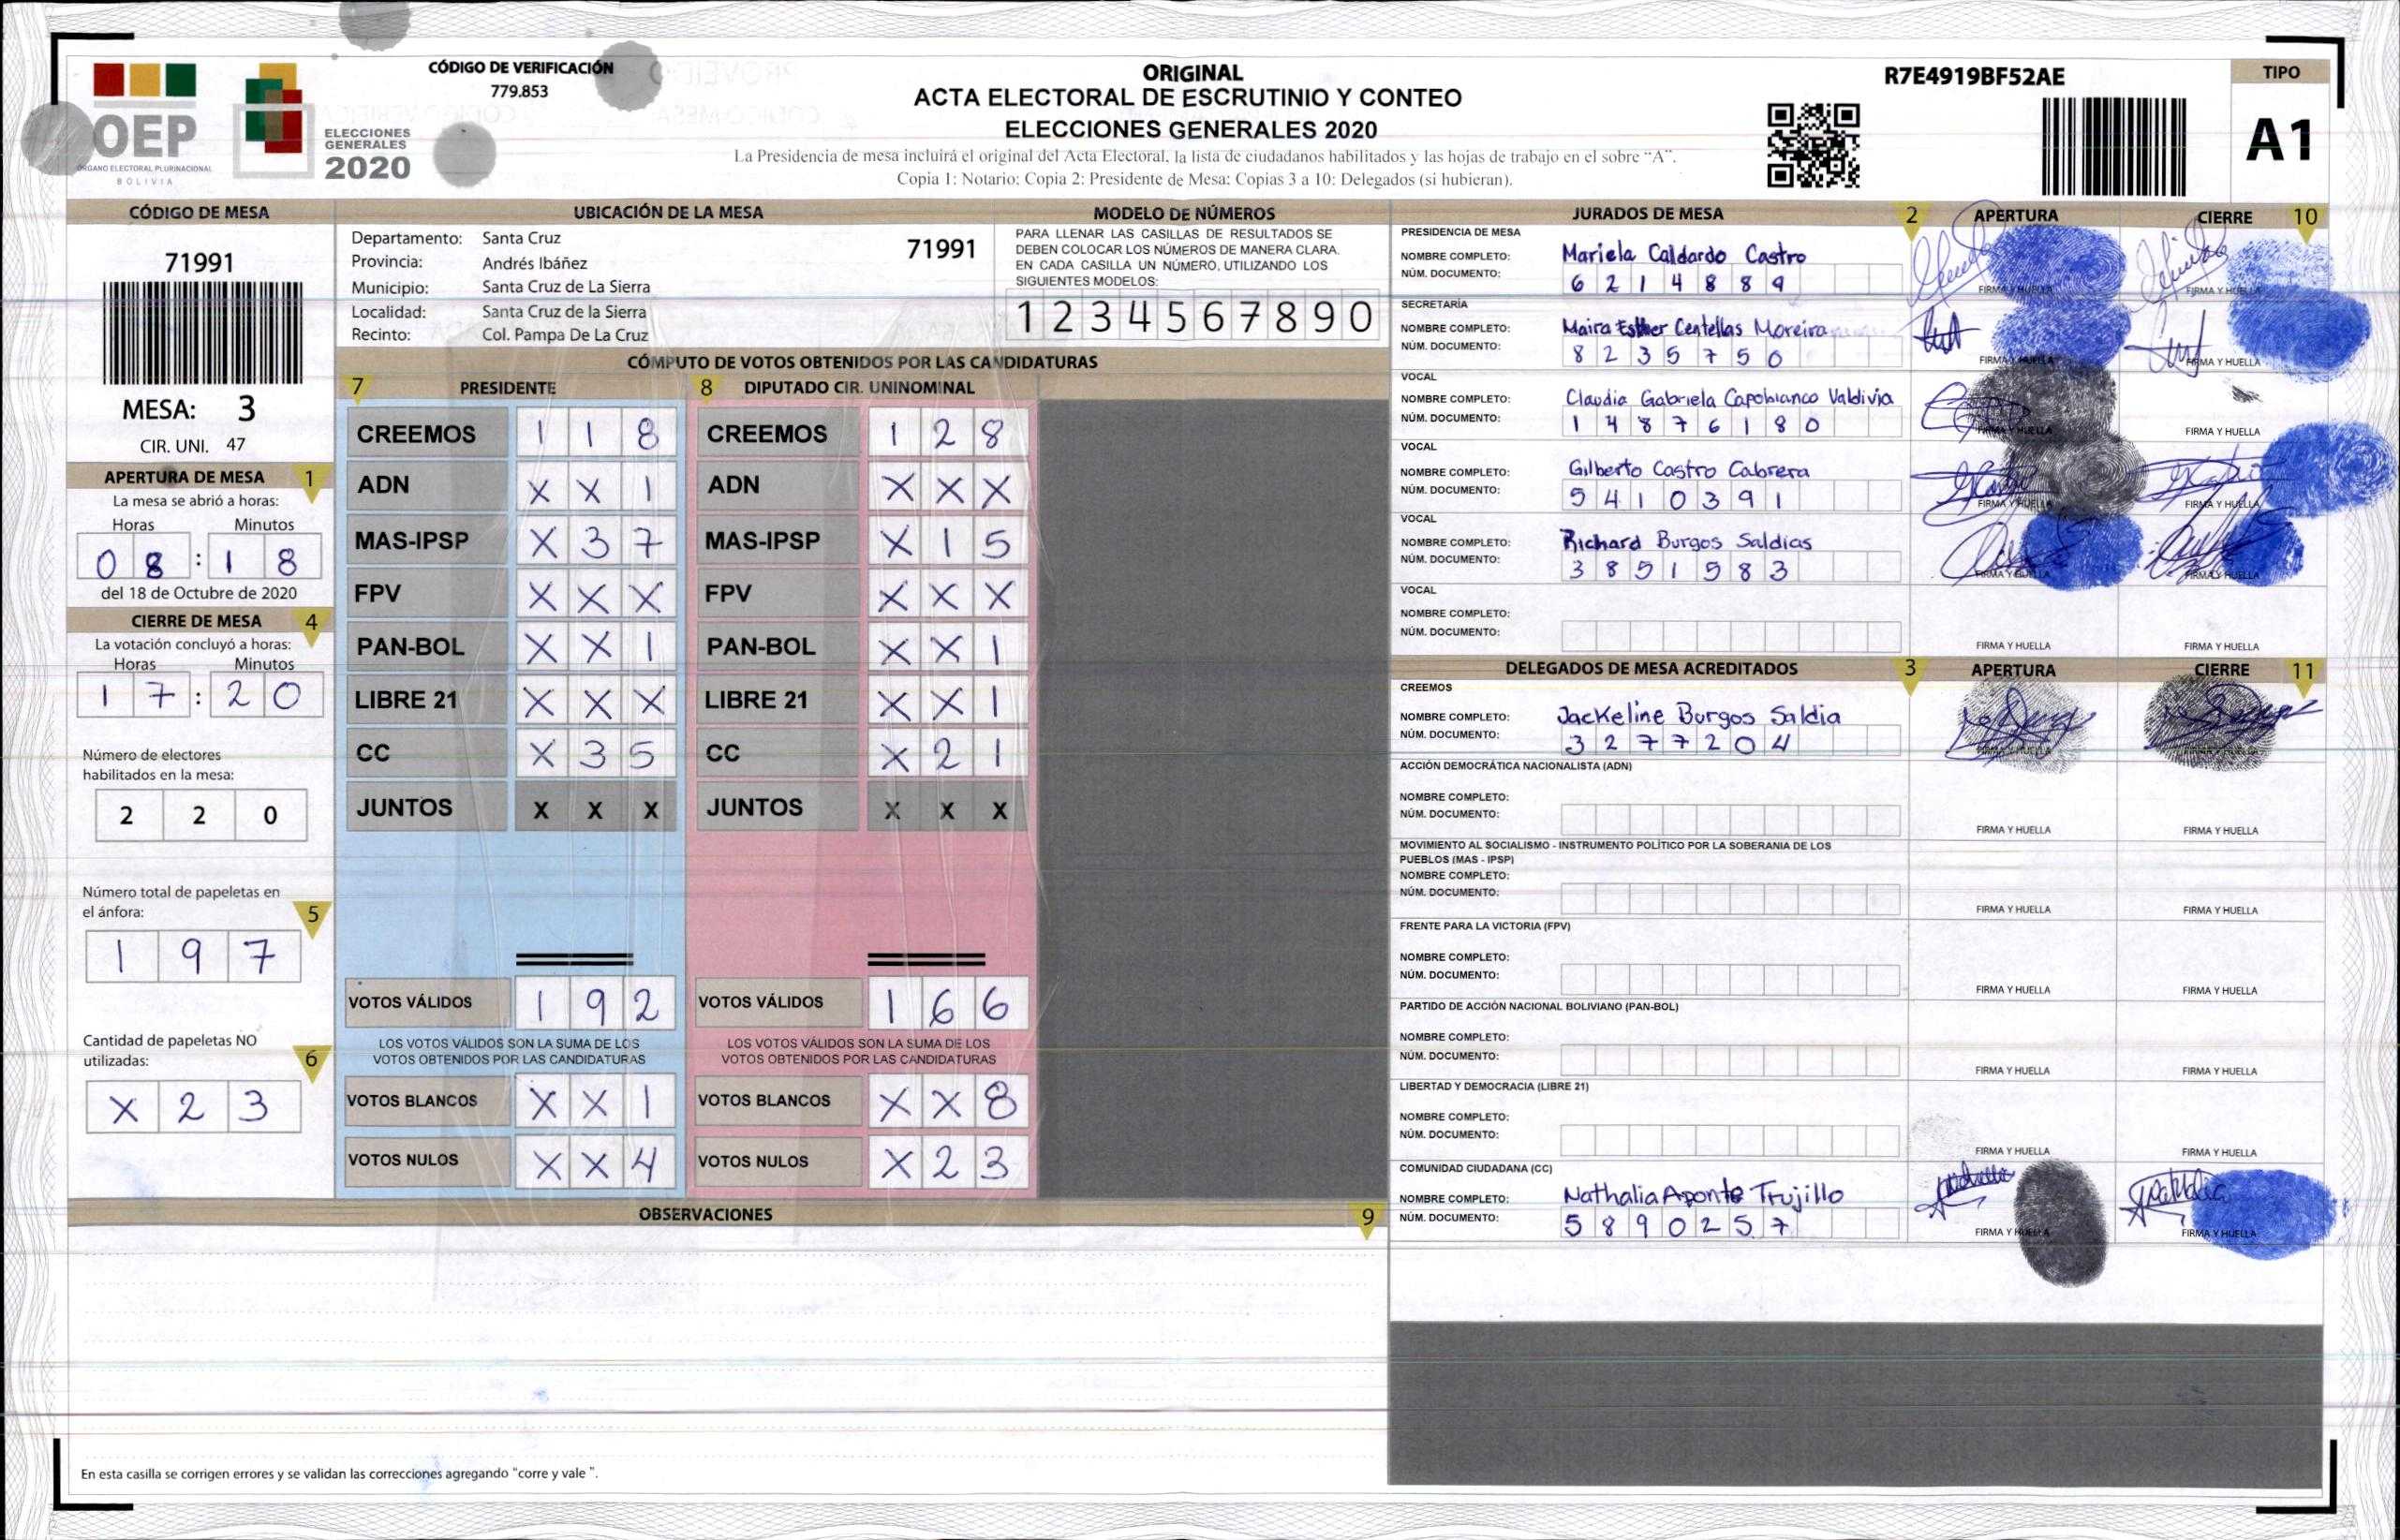 CÓDIGO DE VERIFICACIÓN
779.853
OEP
ÓRGANO ELECTORAL PLURINACIONAL
BOLIVIA
ELECCIONES
GENERALES
2020
ORIGINAL
ACTA ELECTORAL DE ESCRUTINIO Y CONTEO
ELECCIONES GENERALES 2020
La Presidencia de mesa incluirá el original del Acta Electoral, la lista de ciudadanos habilitados y las hojas de trabajo en el sobre "A".
Copia 1: Notario; Copia 2: Presidente de Mesa; Copias 3 a 10: Delegados (si hubieran).
R7E4919BF52AE
TIPO
A1
CÓDIGO DE MESA
71991
MESA: 3
CIR. UNI. 47
APERTURA DE MESA 1
La mesa se abrió a horas:
Horas Minutos
0 8 : 1 8
del 18 de Octubre de 2020
CIERRE DE MESA 4
La votación concluyó a horas:
Horas Minutos
1 7 : 2 0
Número de electores
habilitados en la mesa:
2 2 0
Número total de papeletas en
el ánfora: 5
1 9 7
Cantidad de papeletas NO
utilizadas: 6
X 2 3
UBICACIÓN DE LA MESA
Departamento: Santa Cruz 71991
Provincia: Andrés Ibáñez
Municipio: Santa Cruz de La Sierra
Localidad: Santa Cruz de la Sierra
Recinto: Col. Pampa De La Cruz
MODELO DE NÚMEROS
PARA LLENAR LAS CASILLAS DE RESULTADOS SE
DEBEN COLOCAR LOS NÚMEROS DE MANERA CLARA.
EN CADA CASILLA UN NÚMERO, UTILIZANDO LOS
SIGUIENTES MODELOS:
1 2 3 4 5 6 7 8 9 0
CÓMPUTO DE VOTOS OBTENIDOS POR LAS CANDIDATURAS
7 PRESIDENTE 8 DIPUTADO CIR. UNINOMINAL
CREEMOS 1 1 8 CREEMOS 1 2 8
ADN X X 1 ADN X X X
MAS-IPSP X 3 7 MAS-IPSP X 1 5
FPV X X X FPV X X X
PAN-BOL X X 1 PAN-BOL X X 1
LIBRE 21 X X X LIBRE 21 X X 1
CC X 3 5 CC X 2 1
JUNTOS X X X JUNTOS X X X
VOTOS VÁLIDOS 1 9 2 VOTOS VÁLIDOS 1 6 6
LOS VOTOS VÁLIDOS SON LA SUMA DE LOS LOS VOTOS VÁLIDOS SON LA SUMA DE LOS
VOTOS OBTENIDOS POR LAS CANDIDATURAS VOTOS OBTENIDOS POR LAS CANDIDATURAS
VOTOS BLANCOS X X 1 VOTOS BLANCOS X X 8
VOTOS NULOS X X 4 VOTOS NULOS X 2 3
OBSERVACIONES 9
En esta casilla se corrigen errores y se validan las correcciones agregando "corre y vale ".
JURADOS DE MESA 2 APERTURA CIERRE 10
PRESIDENCIA DE MESA
NOMBRE COMPLETO: Mariela Caldardo Castro
NÚM. DOCUMENTO: 6 2 1 4 8 8 9
FIRMA Y HUELLA FIRMA Y HUELLA
SECRETARÍA
NOMBRE COMPLETO: Maira Esther Centellas Moreira
NÚM. DOCUMENTO: 8 2 3 5 7 5 0
FIRMA Y HUELLA FIRMA Y HUELLA
VOCAL
NOMBRE COMPLETO: Claudia Gabriela Capobianco Valdivia
NÚM. DOCUMENTO: 1 4 8 7 6 1 8 0
FIRMA Y HUELLA FIRMA Y HUELLA
VOCAL
NOMBRE COMPLETO: Gilberto Castro Cabrera
NÚM. DOCUMENTO: 5 4 1 0 3 9 1
FIRMA Y HUELLA FIRMA Y HUELLA
VOCAL
NOMBRE COMPLETO: Richard Burgos Saldias
NÚM. DOCUMENTO: 3 8 5 1 5 8 3
FIRMA Y HUELLA FIRMA Y HUELLA
VOCAL
NOMBRE COMPLETO:
NÚM. DOCUMENTO:
FIRMA Y HUELLA FIRMA Y HUELLA
DELEGADOS DE MESA ACREDITADOS 3 APERTURA CIERRE 11
CREEMOS
NOMBRE COMPLETO: Jackeline Burgos Saldia
NÚM. DOCUMENTO: 3 2 7 7 2 0 4
FIRMA Y HUELLA FIRMA Y HUELLA
ACCIÓN DEMOCRÁTICA NACIONALISTA (ADN)
NOMBRE COMPLETO:
NÚM. DOCUMENTO:
FIRMA Y HUELLA FIRMA Y HUELLA
MOVIMIENTO AL SOCIALISMO - INSTRUMENTO POLÍTICO POR LA SOBERANIA DE LOS
PUEBLOS (MAS - IPSP)
NOMBRE COMPLETO:
NÚM. DOCUMENTO:
FIRMA Y HUELLA FIRMA Y HUELLA
FRENTE PARA LA VICTORIA (FPV)
NOMBRE COMPLETO:
NÚM. DOCUMENTO:
FIRMA Y HUELLA FIRMA Y HUELLA
PARTIDO DE ACCIÓN NACIONAL BOLIVIANO (PAN-BOL)
NOMBRE COMPLETO:
NÚM. DOCUMENTO:
FIRMA Y HUELLA FIRMA Y HUELLA
LIBERTAD Y DEMOCRACIA (LIBRE 21)
NOMBRE COMPLETO:
NÚM. DOCUMENTO:
FIRMA Y HUELLA FIRMA Y HUELLA
COMUNIDAD CIUDADANA (CC)
NOMBRE COMPLETO: Nathalia Aponte Trujillo
NÚM. DOCUMENTO: 5 8 9 0 2 5 7
FIRMA Y HUELLA FIRMA Y HUELLA